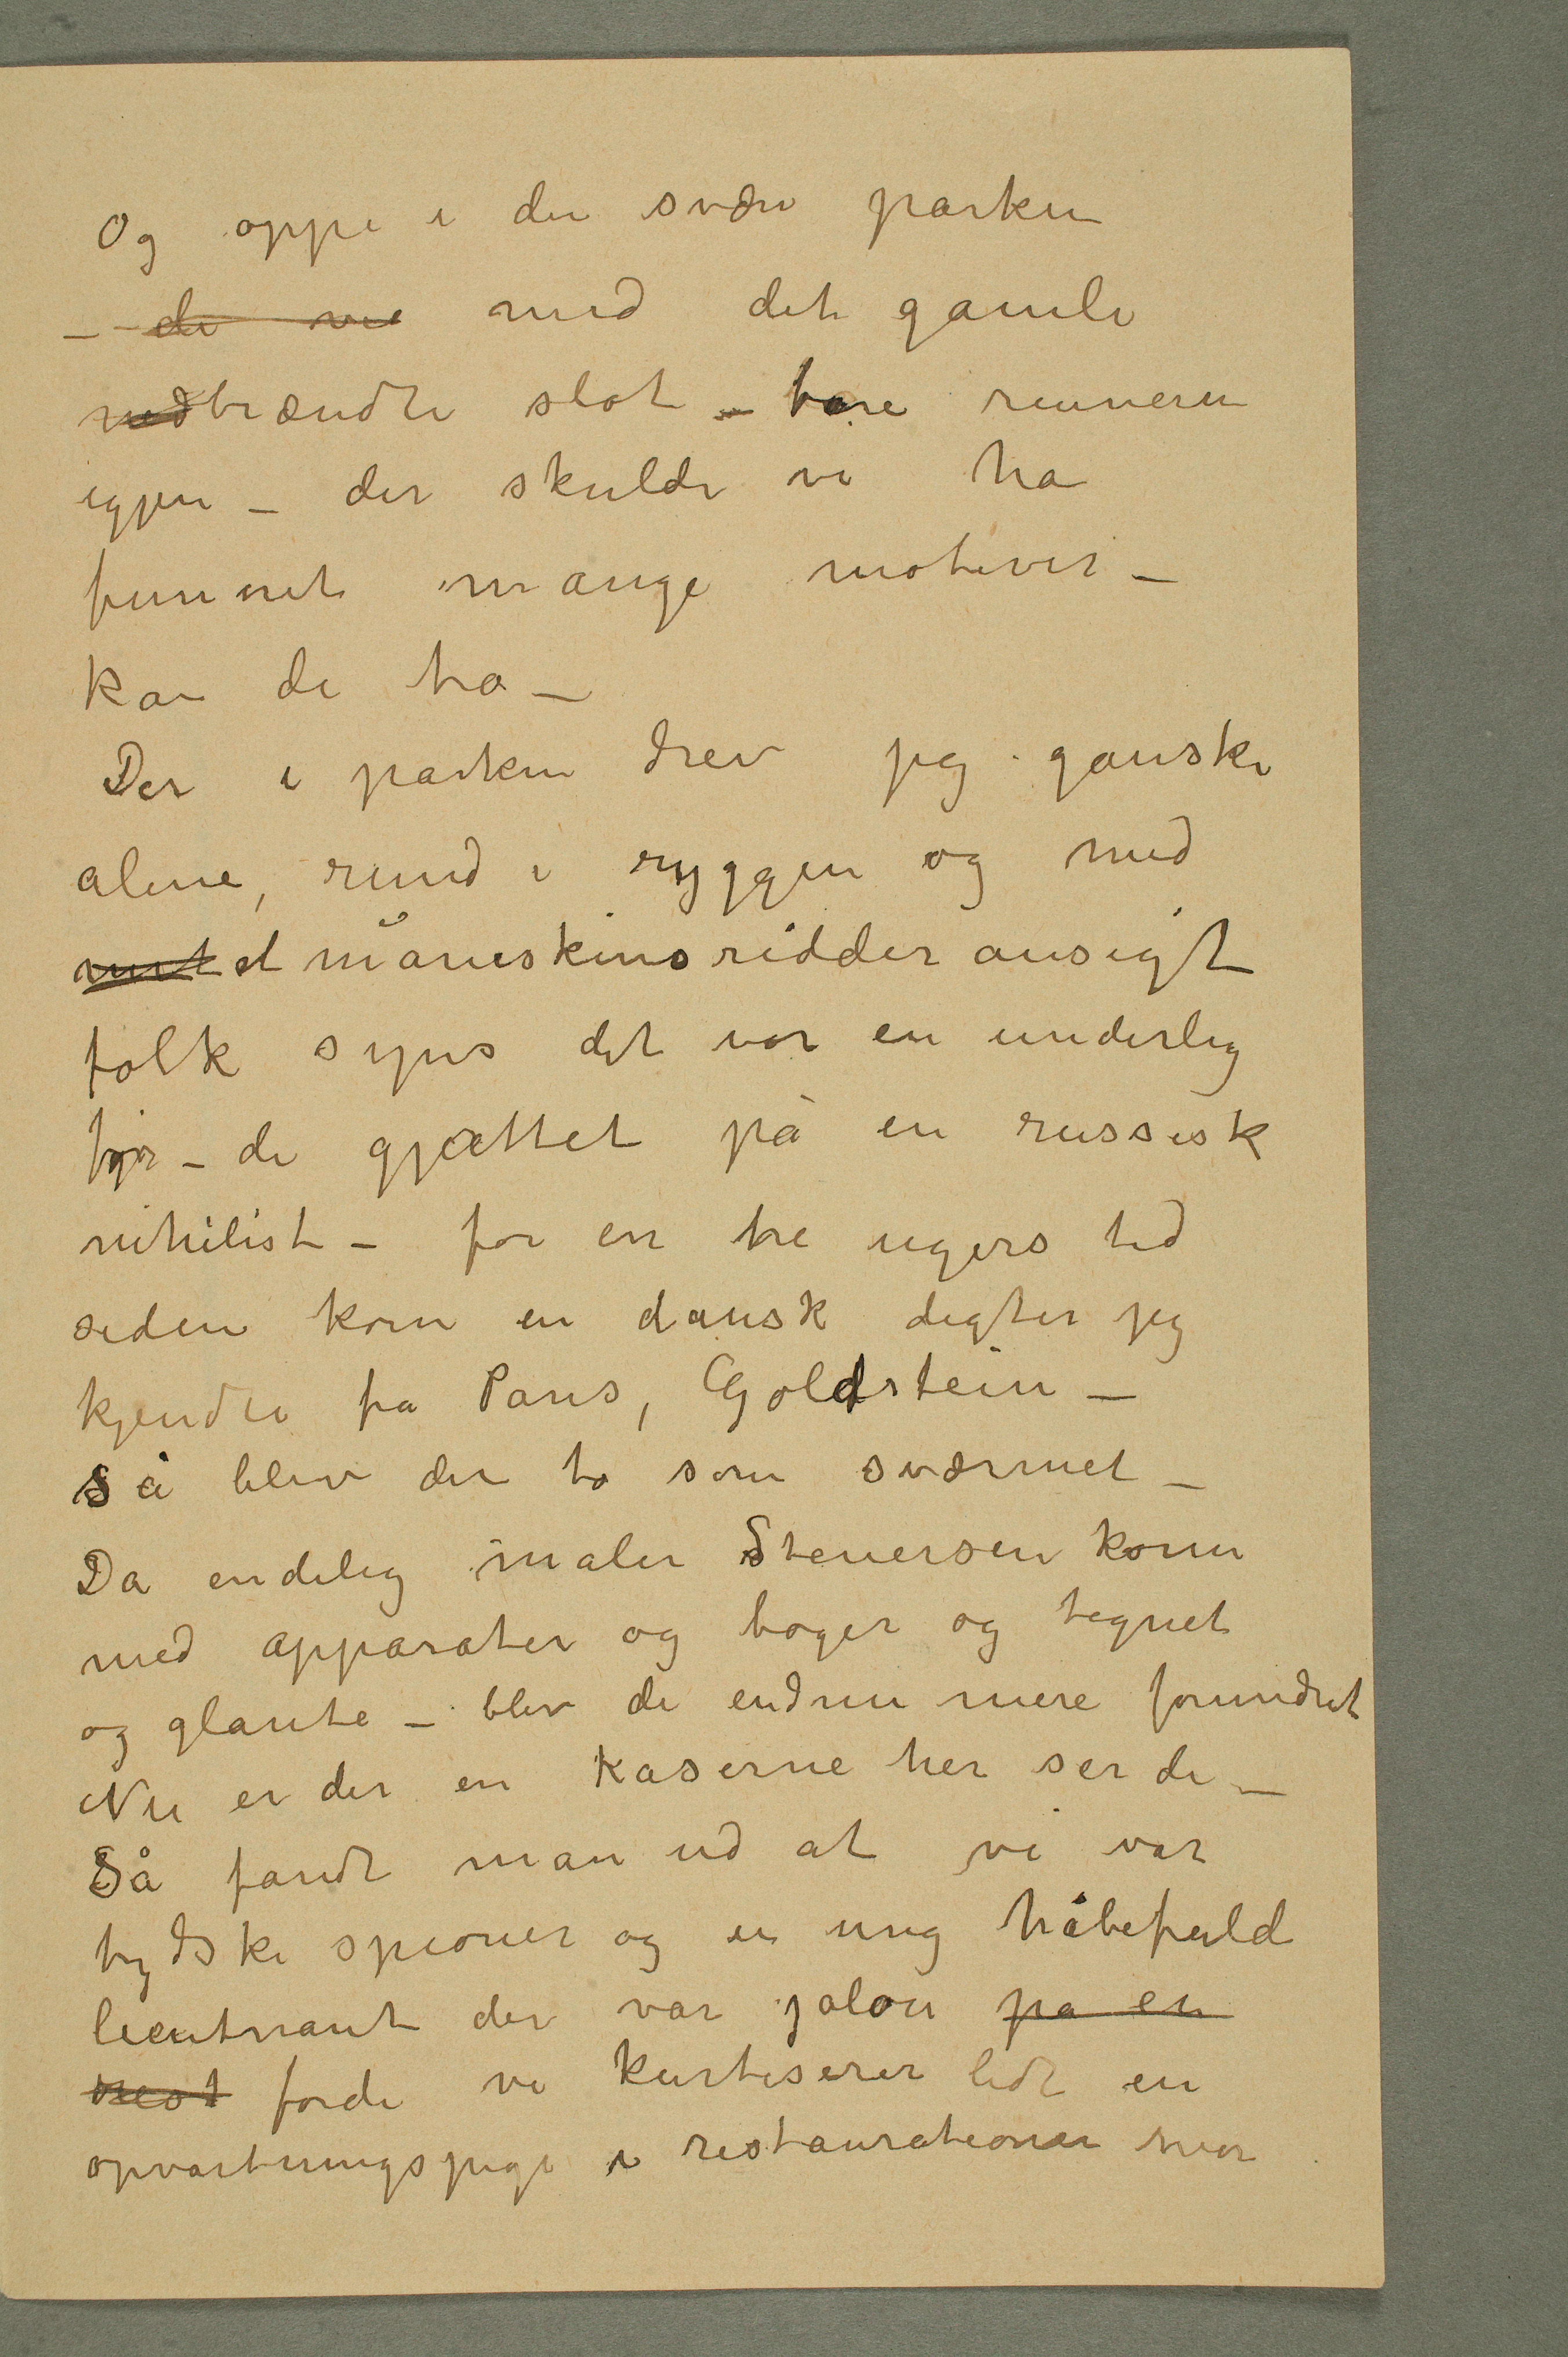 Og oppe i den svære parken
– de ve med det gamle
nedbrændte slot – bare ruinerne
igjen – der skulde vi ha
funnet mange motiver –
kan de tro –
Der i parken drev jeg ganske
alene, rund i ryggen og med
mit et måneskinsridderansigt
folk synes det var en underlig
fyr – de gjættet på en russisk
nihilist – for en tre ugers tid
siden kom en dansk digter jeg
kjendte fra Paris, Goldstein –
Så blev der to som sværmet –
Da endelig maler Stenersen kom
med apparater og bøger og tegnet
og glante – blev de endnu mere forundret
Nu er der en Kaserne her ser de –
Så fandt man ud at vi var
tydske spioner og en ung håbefuld
lieutnant der var jalou på en
rest fordi vi kurtiserer lidt en
opvartningspige i restaurationen hvor